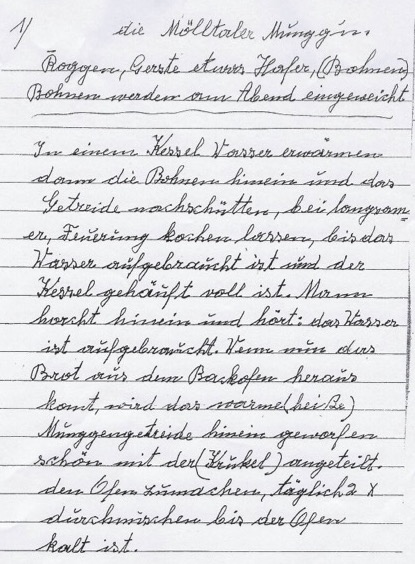 1/ die Mölltaler Munggin.
Roggen, Gerste etwas Hafer, (Bohnen)
Bohnen werden am Abend eingeweicht
In einem Kessel Wasser erwärmen
dann die Bohnen hinein und das
Getreide nachschütten, bei langsam=
er, Feuerung kochen lassen, bis das
Wasser aufgebraucht ist und der
Kessel gehäuft voll ist. Mann
horcht hinein und hört: das Wasser
ist aufgebraucht. Wenn nun das
Brot aus dem Backofen heraus
komt, wird das warme (heiße)
Munggengetreide hinein geworfen
schön mit der (Krukel) angeteilt.
den Ofen zumachen, täglich 2 X
durchmischen bis der Ofen
kalt ist.